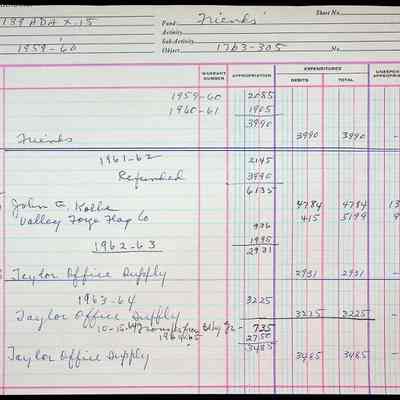 189 ADA X-15 Sheet No.
Fund Friends
Activity
Sub-Activity
1959-60 Object 1763-305 No.
WARRANT NUMBER APPROPRIATION EXPENDITURES DEBITS TOTAL
1959-60 2085
1960-61 1905
3990
Friends 3990 3990 -
1961-62 2145
Refunded 3990
6135
John E. 4784 4784 13
Valley Forge Flag Co 415 5199 9
936
1962-63 1995
2931
Taylor Office Supply 2931 2931 -
1963-64 3225
Taylor Office Supply 3225 3225 -
10-15-64 Transfer from 735
1964-65 2750
3485
Taylor Office Supply 3485 3485 -